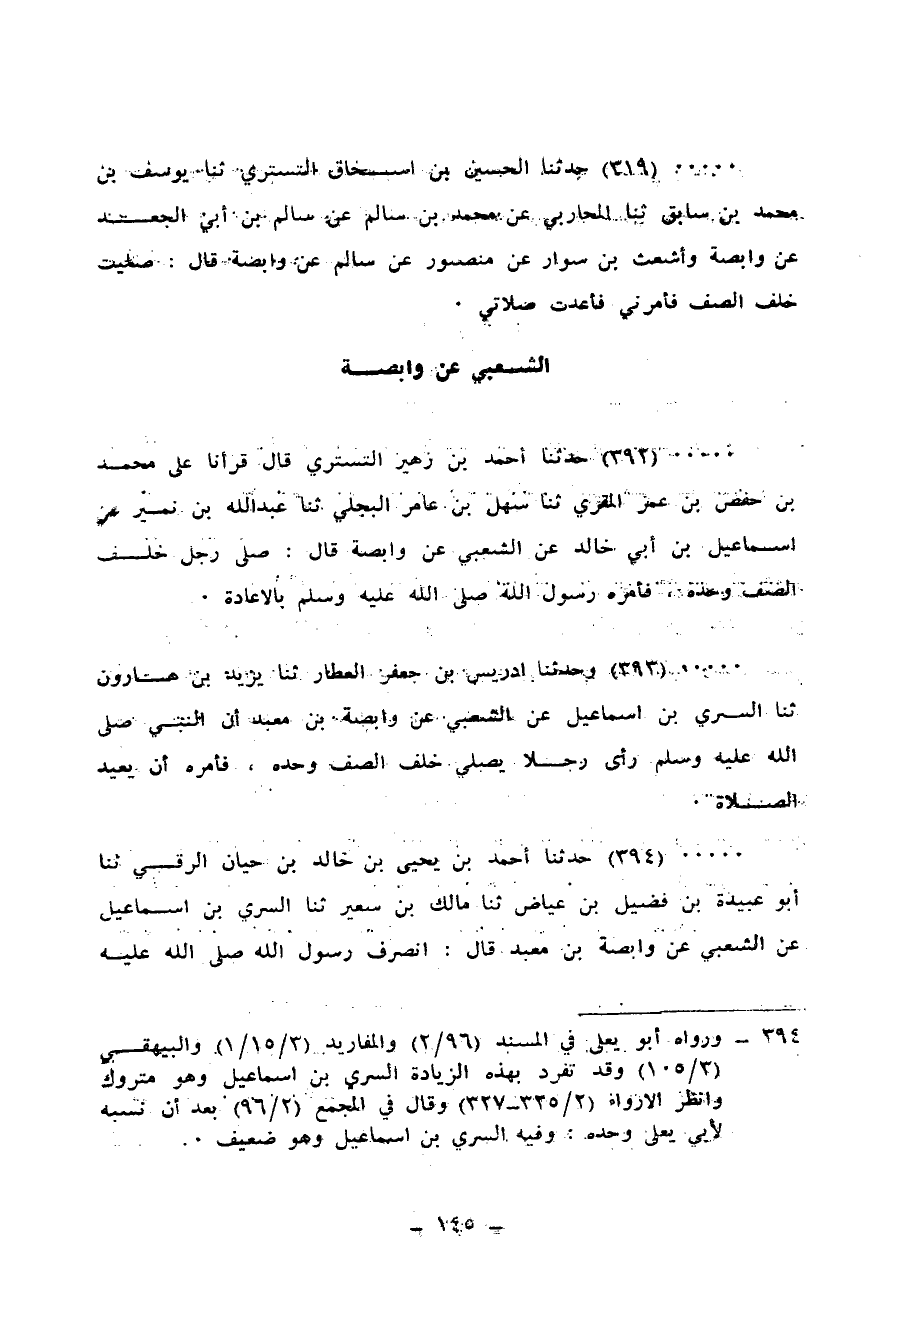 ٠٠٠٠٠ (٣١٩) حدثنا الحسين بن اسحاق التستري ثنا يوسف بن
محمد بن سابق ثنا المحاربي عن محمد بن سالم عن سالم بن أبي الجعد
عن وابصة وأشعث بن سوار عن منصور عن سالم عن وابصة قال : صليت
خلف الصف فأمرني فأعدت صلاتي ٠
الشعبي عن وابصة
٠٠٠٠٠ (٣٩٢) حدثنا أحمد بن زهير التستري قال قرأنا على محمد
بن حفص بن عمر المقري ثنا سهل بن عامر البجلي ثنا عبدالله بن نمير عن
اسماعيل بن أبي خالد عن الشعبي عن وابصة قال : صلى رجل خلف
الصف وحده ، فأمره رسول الله صلى الله عليه وسلم بالاعادة ٠
٠٠٠٠٠ (٣٩٣) وحدثنا ادريس بن جعفر العطار ثنا يزيد بن هارون
ثنا السري بن اسماعيل عن الشعبي عن وابصة بن معبد أن النبي صلى
الله عليه وسلم رأى رجلا يصلي خلف الصف وحده ، فأمره أن يعيد
الصلاة ٠
٠٠٠٠٠ (٣٩٤) حدثنا أحمد بن يحيى بن خالد بن حيان الرقي ثنا
أبو عبيدة بن فضيل بن عياض ثنا مالك بن سعير ثنا السري بن اسماعيل
عن الشعبي عن وابصة بن معبد قال : انصرف رسول الله صلى الله عليه
٣٩٤ ــ ورواه أبو يعلى في المسند (٢/٩٦) والمفاريد (١/١٥/٣) والبيهقي
(١٠٥/٣) وقد تفرد بهذه الزيادة السري بن اسماعيل وهو متروك
وانظر الارواء (٣٢٥/٢ــ٣٢٧) وقال في المجمع (٩٦/٢) بعد أن نسبه
لأبي يعلى وحده : وفيه السري بن اسماعيل وهو ضعيف ٠
ــ ١٤٥ ــ